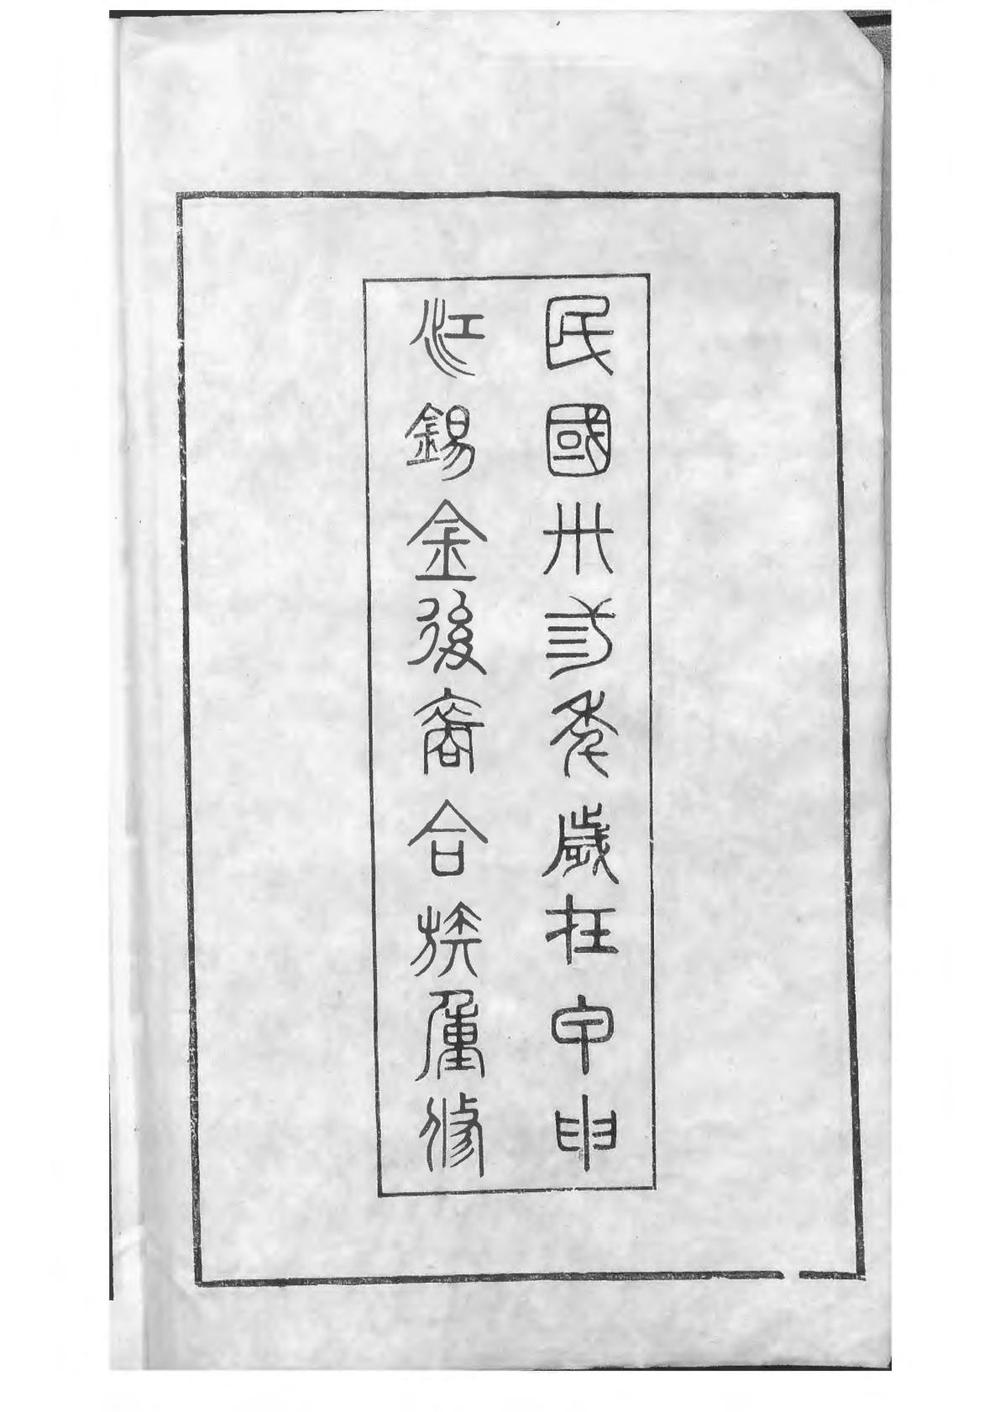 民國卅弎秊歲在甲申
江錫金後裔合族重修